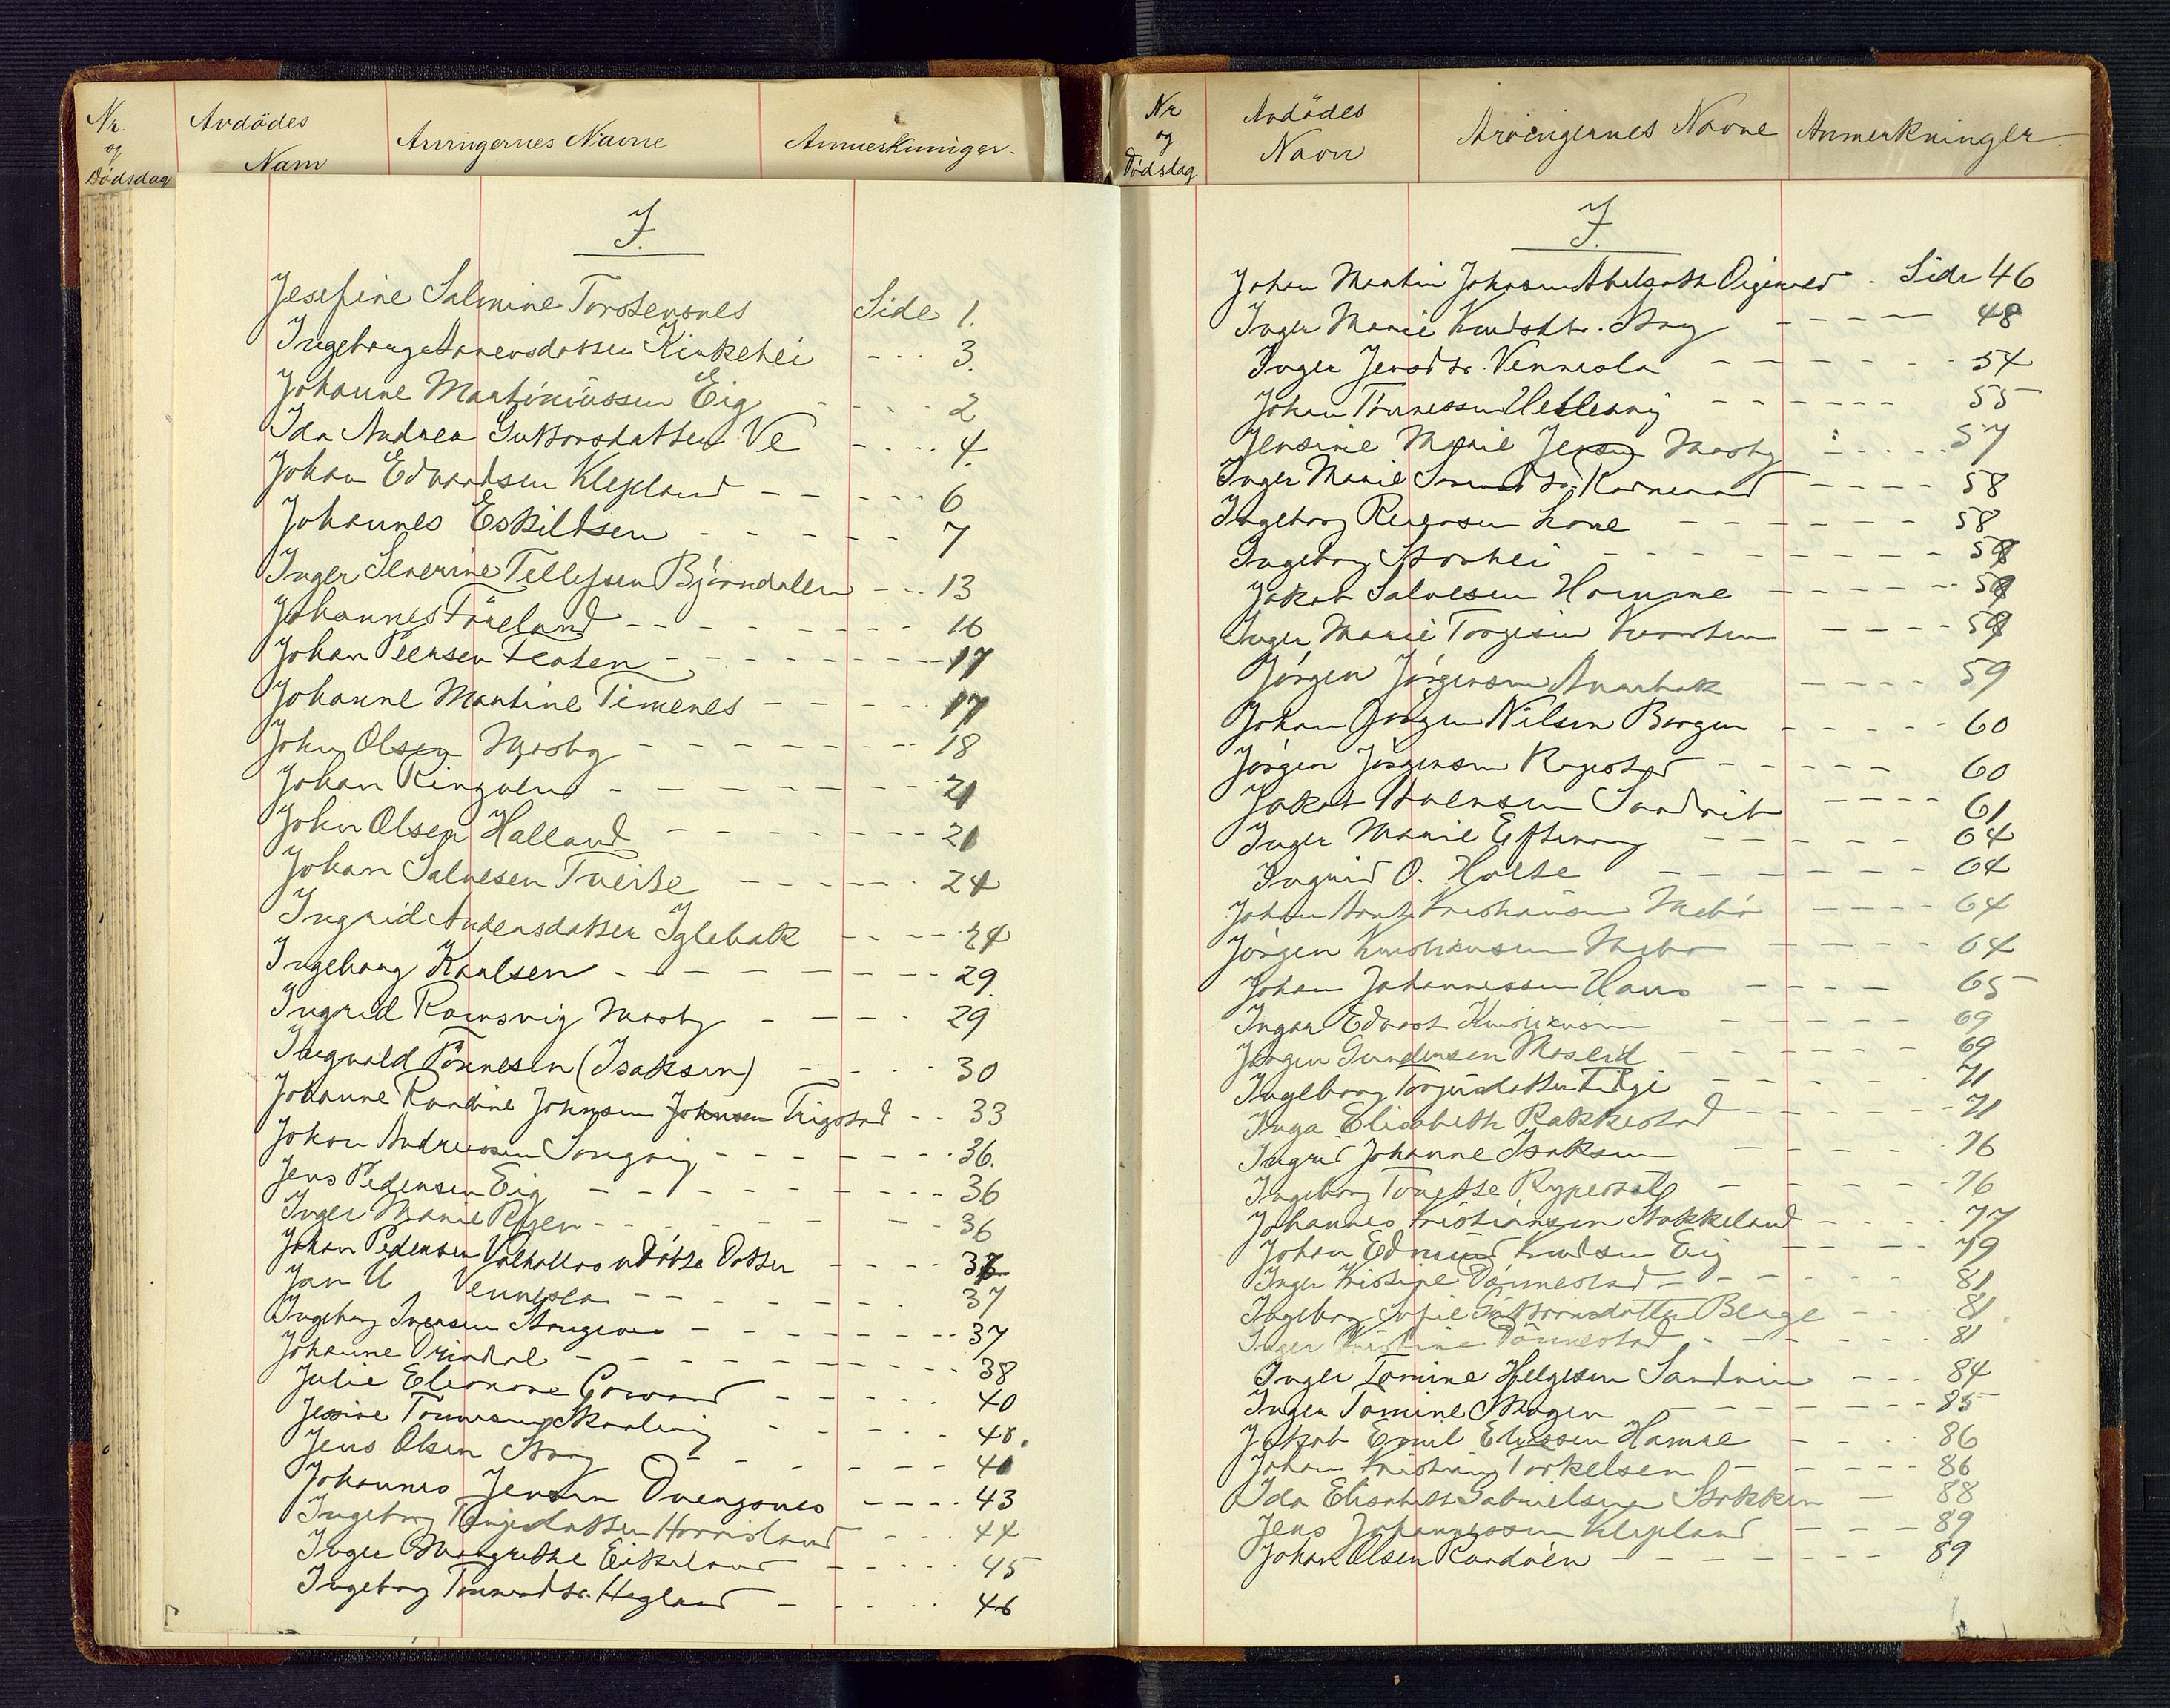 Nr. og Dödsdag
Avdödes Navn
Arvingernes Navne
Anmerkninger.
J.
Josefine Salmine Torstensnes Side 1.
Ingeborg Aanensdatter Kirkehei - - - 3.
Johanne Martiniussen Eig - - - - 2
Ida Andrea Guttormsdatter Ve - - - - 4.
Johan Edvardsen Klepland - - - - - 6
Johannes Eskildsen - - - - - 7
Inger Severine Tellefsen Bjørndalen - - - 13
Johannes Föreland - - - - - - - 16
Johan Peersen Fløten - - - - - - - 17
Johanne Martine Timenes - - - - - 17
John Olsen Mosby - - - - - - - 18
Johan Ringulv - - - - - - - 21
John Olsen Halland - - - - - - - 21
Johan Salvesen Tveite - - - - - - 24
Ingrid Andersdatter Iglebæk - - - - 24
Ingeborg Karlsen - - - - - - - - 29.
Ingrid Ramsvig Mosby - - - - 29
Ingvald Tönnesen (Isaksen) - - - - 30
Johanne Randine Johnsen Johnsen Trigstad - - 33
Johan Andreassen Songvig - - - - - - - 36.
Jens Pedersen Eig - - - - - - - - 36
Inger Marie - - - - - - - 36
Johan Pedersen Datter - - - - 37
Jan U Vennesla - - - - - - - 37
Ingeborg Iversen - - - - - - - 37
Johanne - - - - - - - - - 38
Julie Eleonore - - - - 40
Jensine Tönnesen - - - - 40.
Jens Olsen Stray - - - - - - 41
Johannes Jensen Drengsnes - - - - 43
Ingeborg Terjesdatter - - - 44
Inger Margrethe Eikeland - - - - 45
Ingeborg Tönnesdtr. Hægland - - - - 46
Nr og Dödsdag
Avdödes Navn
Arvingernes Navne
Anmerkninger.
J.
Johan Martin Johnsen Side 46
Inger Marie Knudsdtr. Stray - - - - 48
Inger Jensdtr. Vennesla - - - - - - 54
Johan Tönnessen - - - - - - 55
Jensine Marie Jensen Mosby - - - - 57
Inger Marie - - - - 58
Ingeborg Lone - - - - - - 58
Ingeborg Storhei - - - - - - - - 59
Jakob Salvesen Homme - - - - - - 59
Inger Marie Torgesen Kvarstein - - - - 59
Jörgen Jörgensen Aurebæk - - - - 59
Johan Jörgen Nilsen Borgen - - - - - 60
Jörgen Jörgensen - - - - - 60
Jakob - - - - 61
Inger Marie Eftevaag - - - - - 64
Ingrid O. Holte - - - - - - - 64
Johan Kristiansen Mebö - - - - 64
Jörgen Kristiansen Mebö - - - - 64
Johan Johannessen Haus - - - - 65
Ingar Edvart Kristiansen - - - - - 69
Jörgen Gundersen Moseid - - - - - - 69
Ingeborg Torjusdatter - - - - - 71
Inga Elisabeth Rakkestad - - - - - 71
Ingrid Johanne Isaksen - - - - 76
Ingeborg Tonette Rypestøl - - - - - 76
Johannes Kristiansen Stokkeland - - - - 77
Johan Edmund Knudsen Eig - - - - 79
Inger Kristine Dønnestad - - - - - - 81
Ingeborg Sofie Guttormsdatter Berge - - - 81
Inger Kristine Dönnestad - - - - - 81
Inger Tomine Helgesen Sandvin - - - 84
Inger Tomine Skogen - - - - - - - 85
Jakob Emil Eliassen Hamre - - - - 86
Johan Kristian Torkelsen - - - - - 86
Ida Elisabeth Gabrielsen Stokken - 88
Jens Johannessen Klepland - - - 89
Johan Olsen - - - - - - - 89